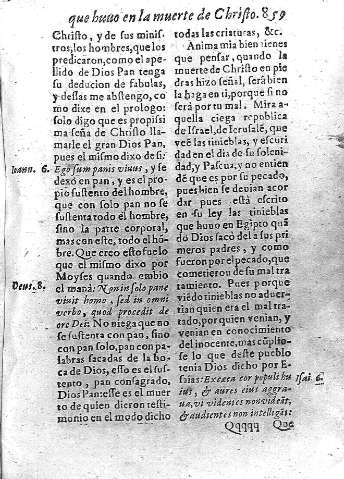 que huuo en la muerte de Christo. 859
Christo, y de sus minist-
ros, los hombres, que los
predicaron, como el ape-
llido de Dios Pan tenga
su deducion de fabulas,
y dellas me abstengo, co-
mo dixe en el prologo:
solo digo que es propissi
ma seña de Christo lla-
marle el gran Dios Pan,
pues el mismo dixo de si:
Ioann. 6.
Ego sum panis viuus, y se
dexò en pan, y es el pro-
pio sustento del hombre,
que con solo pan no se
sustenta todo el hombre,
sino la parte corporal,
mas con este, todo el hõ-
bre. Que creo esto fue lo
que el mismo dixo por
Moyses quando embio
Deut. 8.
el manà: Non in solo pane
viuit homo, sed in omni
verbo, quod procedit de
ore Dei: No niega que no
se sustenta con pan, sino
con pan solo, pan con pa-
labras sacadas de la bo-
ca de Dios, esso es el sus-
tento, pan consagrado,
Dios Pan: esse es el muer
to de quien dieron testi-
monio en el modo dicho
todas las criaturas, &c.
Anima mia bien tienes
que pensar, quando la
muerte de Christo en pie
dras hizo señal, serà bien
la haga en ti, porque si no
serà por tu mal. Mira a-
quella ciega republica
de Israel, de Ierusalẽ, que
veẽ las tinieblas, y escuri
dad en el dia de su soleni-
dad, y Pascua, y no entien
dẽ que es por se pecado,
pues bien se deuian acor
dar pues està escrito
en su ley las tinieblas
que huuo en Egipto quã
do Dios sacò della sus pri
meros padres, y como
fueron por el pecado, que
cometieron de su mal tra
tamiento. Pues por que
viẽdo tinieblas no aduer-
tian quien era el mal tra-
tado, por quien venian, y
venian en conocimiento
del inocente, mas cũplio-
se lo que deste pueblo
tenia Dios dicho por E-
Isai. 6.
saias: Execa cor populi hu
ius, & aures eius aggra-
ua, vt videntes non videãt,
& audientes non intelligãt:
Qqqqq Que